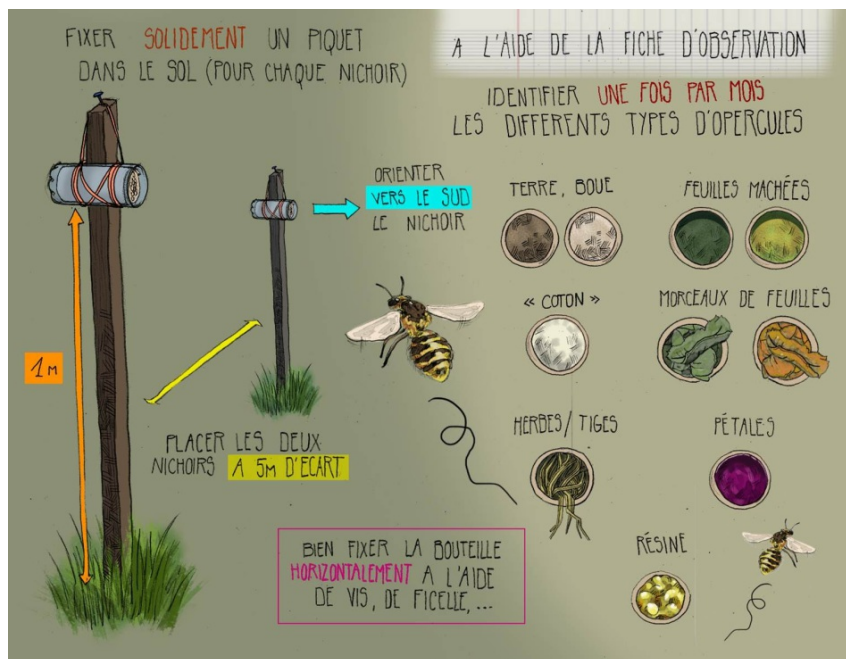 FIXER SOLIDEMENT UN PIQUET
DANS LE SOL (POUR CHAQUE NICHOIR)
1M
ORIENTER
VERS LE SUD
LE NICHOIR
PLACER LES DEUX
NICHOIRS A 5M D'ECART
BIEN FIXER LA BOUTEILLE
HORIZONTALEMENT A L'AIDE
DE VIS, DE FICELLE, ...
A L'AIDE DE LA FICHE D'OBSERVATION
IDENTIFIER UNE FOIS PAR MOIS
LES DIFFERENTS TYPES D'OPERCULES
TERRE, BOUE
FEUILLES MACHÉES
« COTON »
MORCEAUX DE FEUILLES
HERBES/TIGES
PÉTALES
RÉSINE